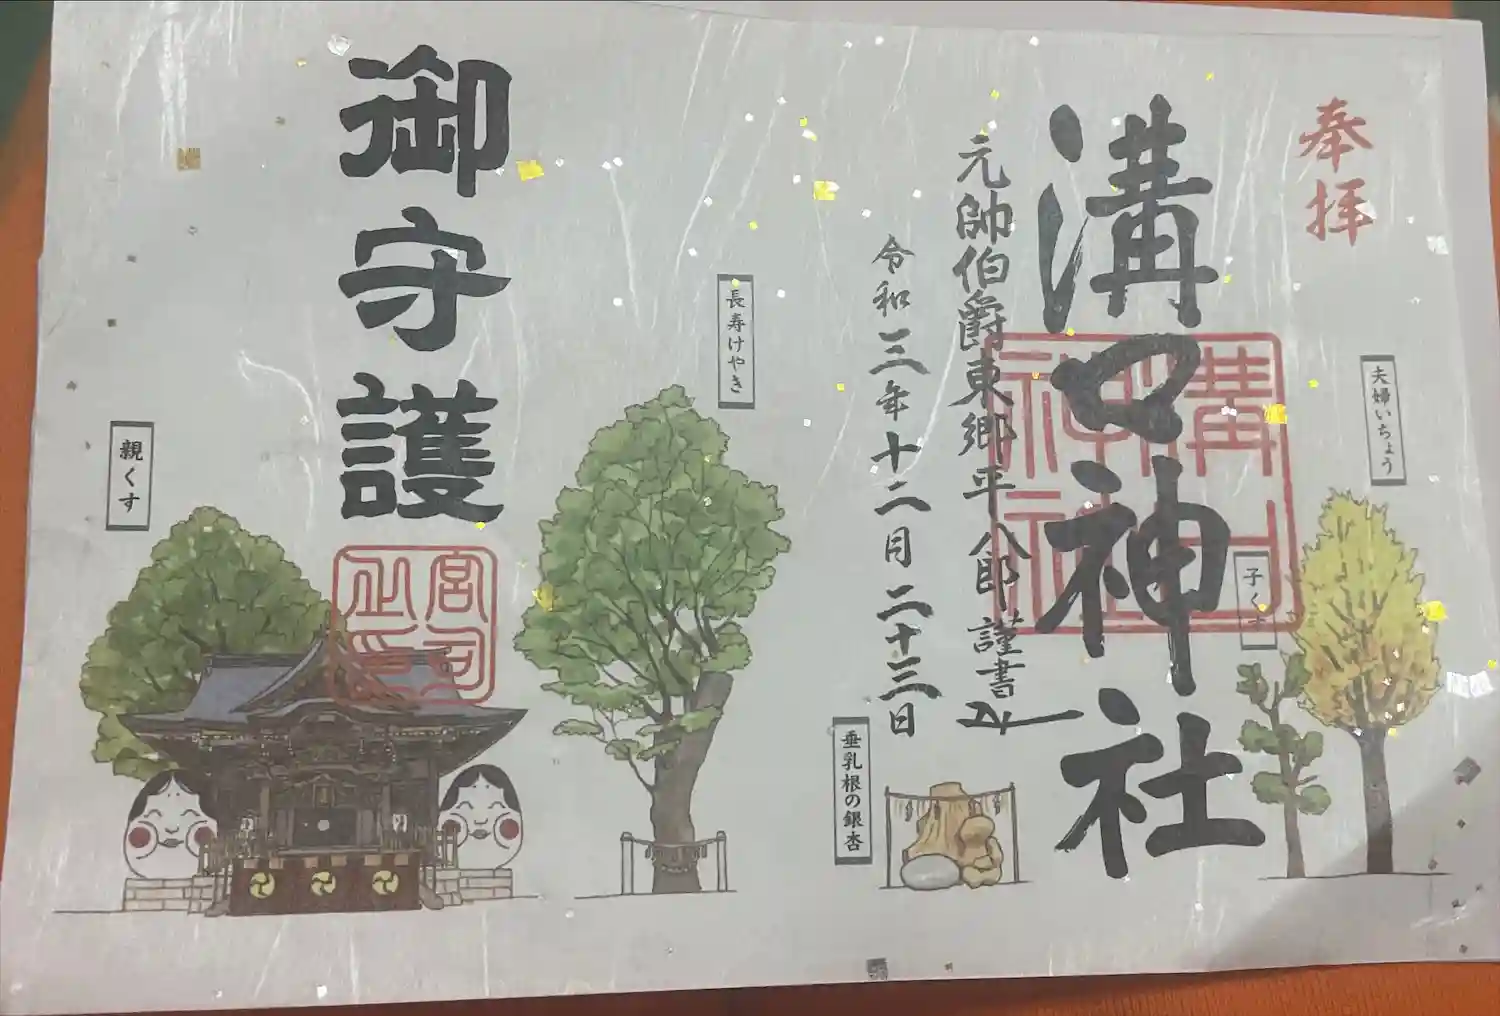 奉拝
夫婦いちょう
溝口神社
元帥伯爵東郷平八郎謹書
令和三年十二月二十三日
垂乳根の銀杏
長寿けやき
御守護
宮司
親くす